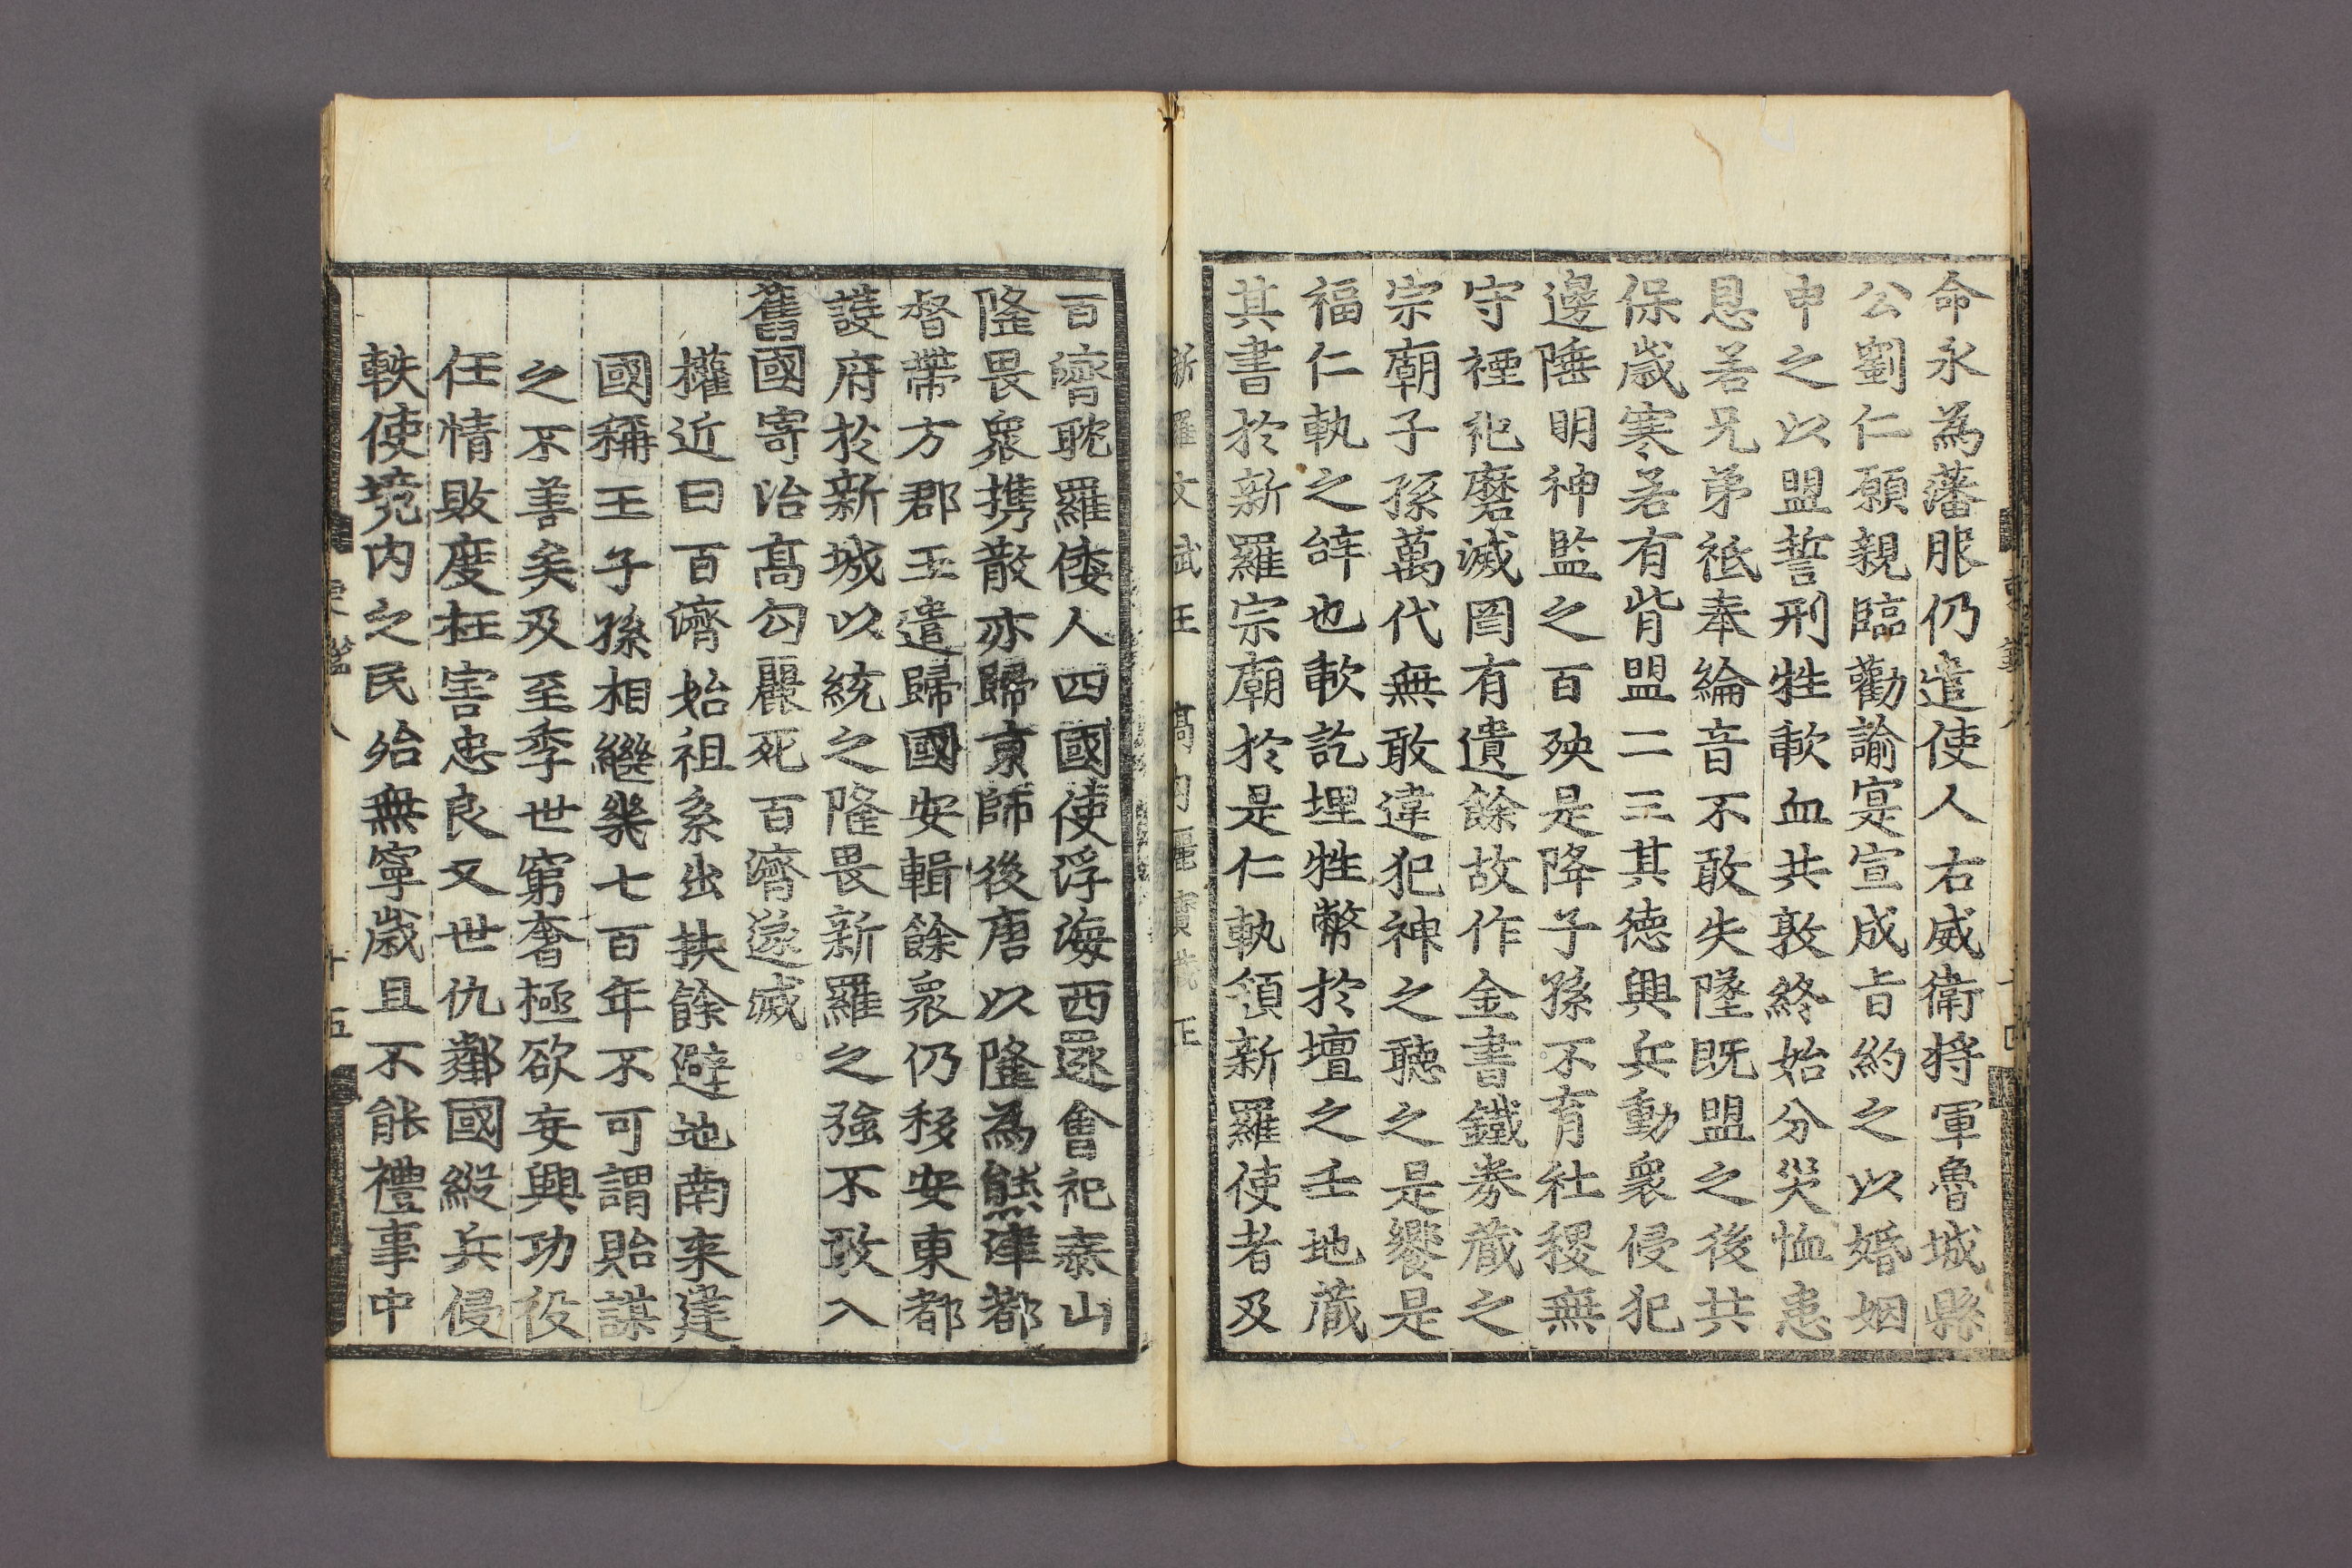 命永為藩服仍遣使人右威衛将軍魯城縣
公劉仁願親臨勸諭寔宣成旨約之以婚姻
申之以盟誓刑牲歃血共敦終始分災恤患
恩若兄弟祗奉綸音不敢失墜既盟之後共
保歲寒若有背盟二三其德興兵動衆侵犯
邊陲明神監之百殃是降子孫不育社稷無
守禋祀磨滅罔有遺餘故作金書鐵券藏之
宗廟子孫萬代無敢違犯神之聽之是饗是
福仁軌之辞也歃訖埋牲幣於壇之壬地藏
其書於新羅宗廟於是仁軌領新羅使者及
新羅文武王 高句麗寶臧王
百濟耽羅倭人四國使浮海西還會祀泰山
隆畏衆携散亦歸京師後唐以隆為熊津都
督帶方郡王遣歸國安輯餘衆仍移安東都
護府於新城以統之隆畏新羅之強不敢入
舊國寄治高勾麗死百濟遂滅
權近曰百濟始祖系出扶餘避地南来建
國稱王子孫相繼幾七百年不可謂貽謀
之不善矣及至季世窮奢極欲妄興功役
任情敗度枉害忠良又世仇鄰國縱兵侵
軼使境内之民殆無寧歲且不能禮事中